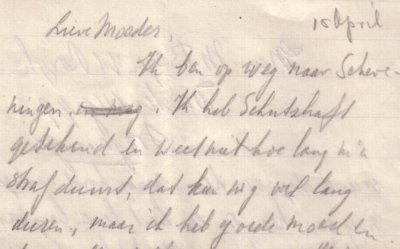 15 April
Lieve Moeder,
Ik ben op weg naar Scheve-
ningen. Ik heb Schutzhaft
getekend en weet niet hoe lang m'n
straf duurt, dat kan nog wel lang
duren, maar ik heb goede moed en